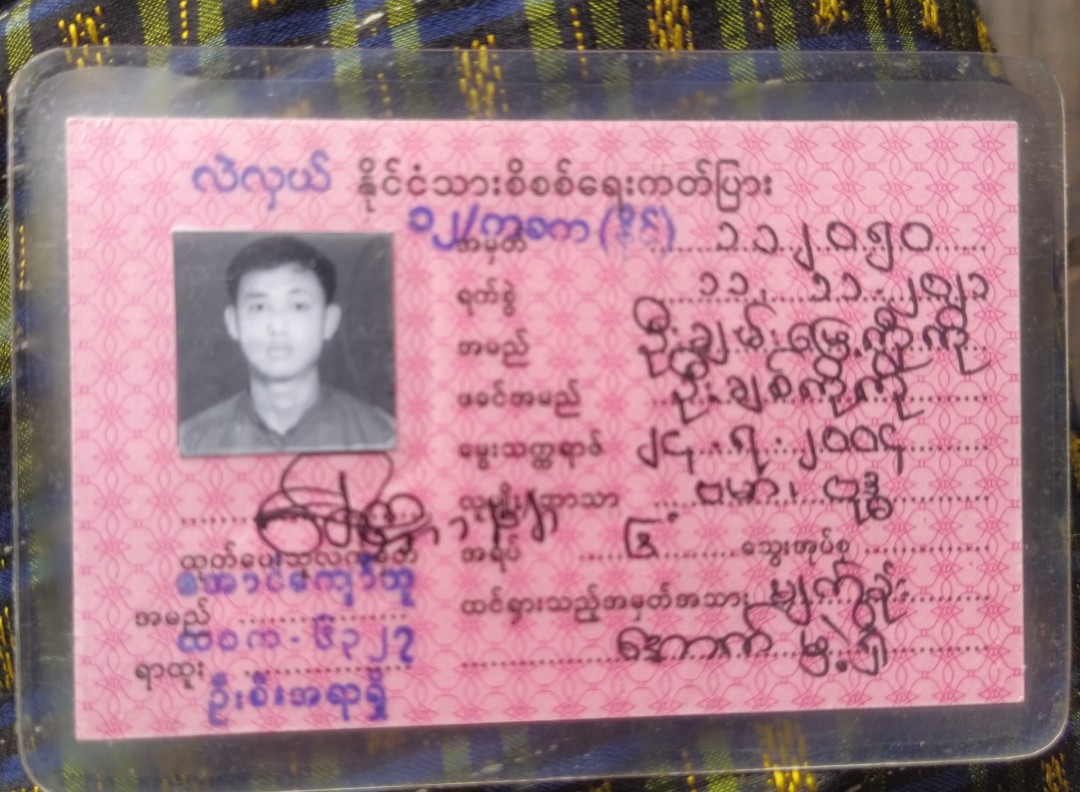 လဲလှယ် နိုင်ငံသားစိစစ်ရေးကတ်ပြား
၁၂/ကခက (နိုင်)
အမှတ် ၁၁၂၀၅၀
ရက်စွဲ ၁၁.၁၁.၂၀၂၁
အမည် ဦးချမ်းမြေ့ကိုကို
ဖခင်အမည် ဦးချစ်ကိုကို
မွေးသက္ကရာဇ် ၂၄.၇.၂၀၀၄
လူမျိုး/ဘာသာ ဗမာ၊ ဗုဒ္ဓ
အရပ် သွေးအုပ်စု
ထင်ရှားသည့်အမှတ်အသား မျက်ခုံး
ကောက် မှဲ့ရှိ
ထုတ်ပေးသူလက်မှတ်
အောင်ကျော်ဘူ
အမည်
လဝက - ၆၃၂၇
ရာထူး
ဦးစီးအရာရှိ